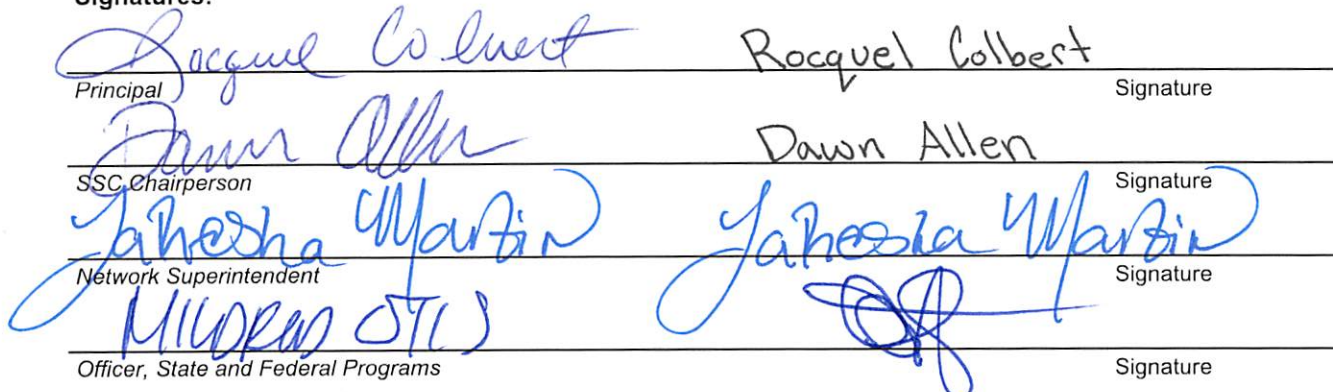 Signatures:
Rocquel Colbert Rocquel Colbert
Principal Signature
Dawn Allen Dawn Allen
SSC Chairperson Signature
Martin Martin
Network Superintendent Signature
MILDRED OTIS
Officer, State and Federal Programs Signature